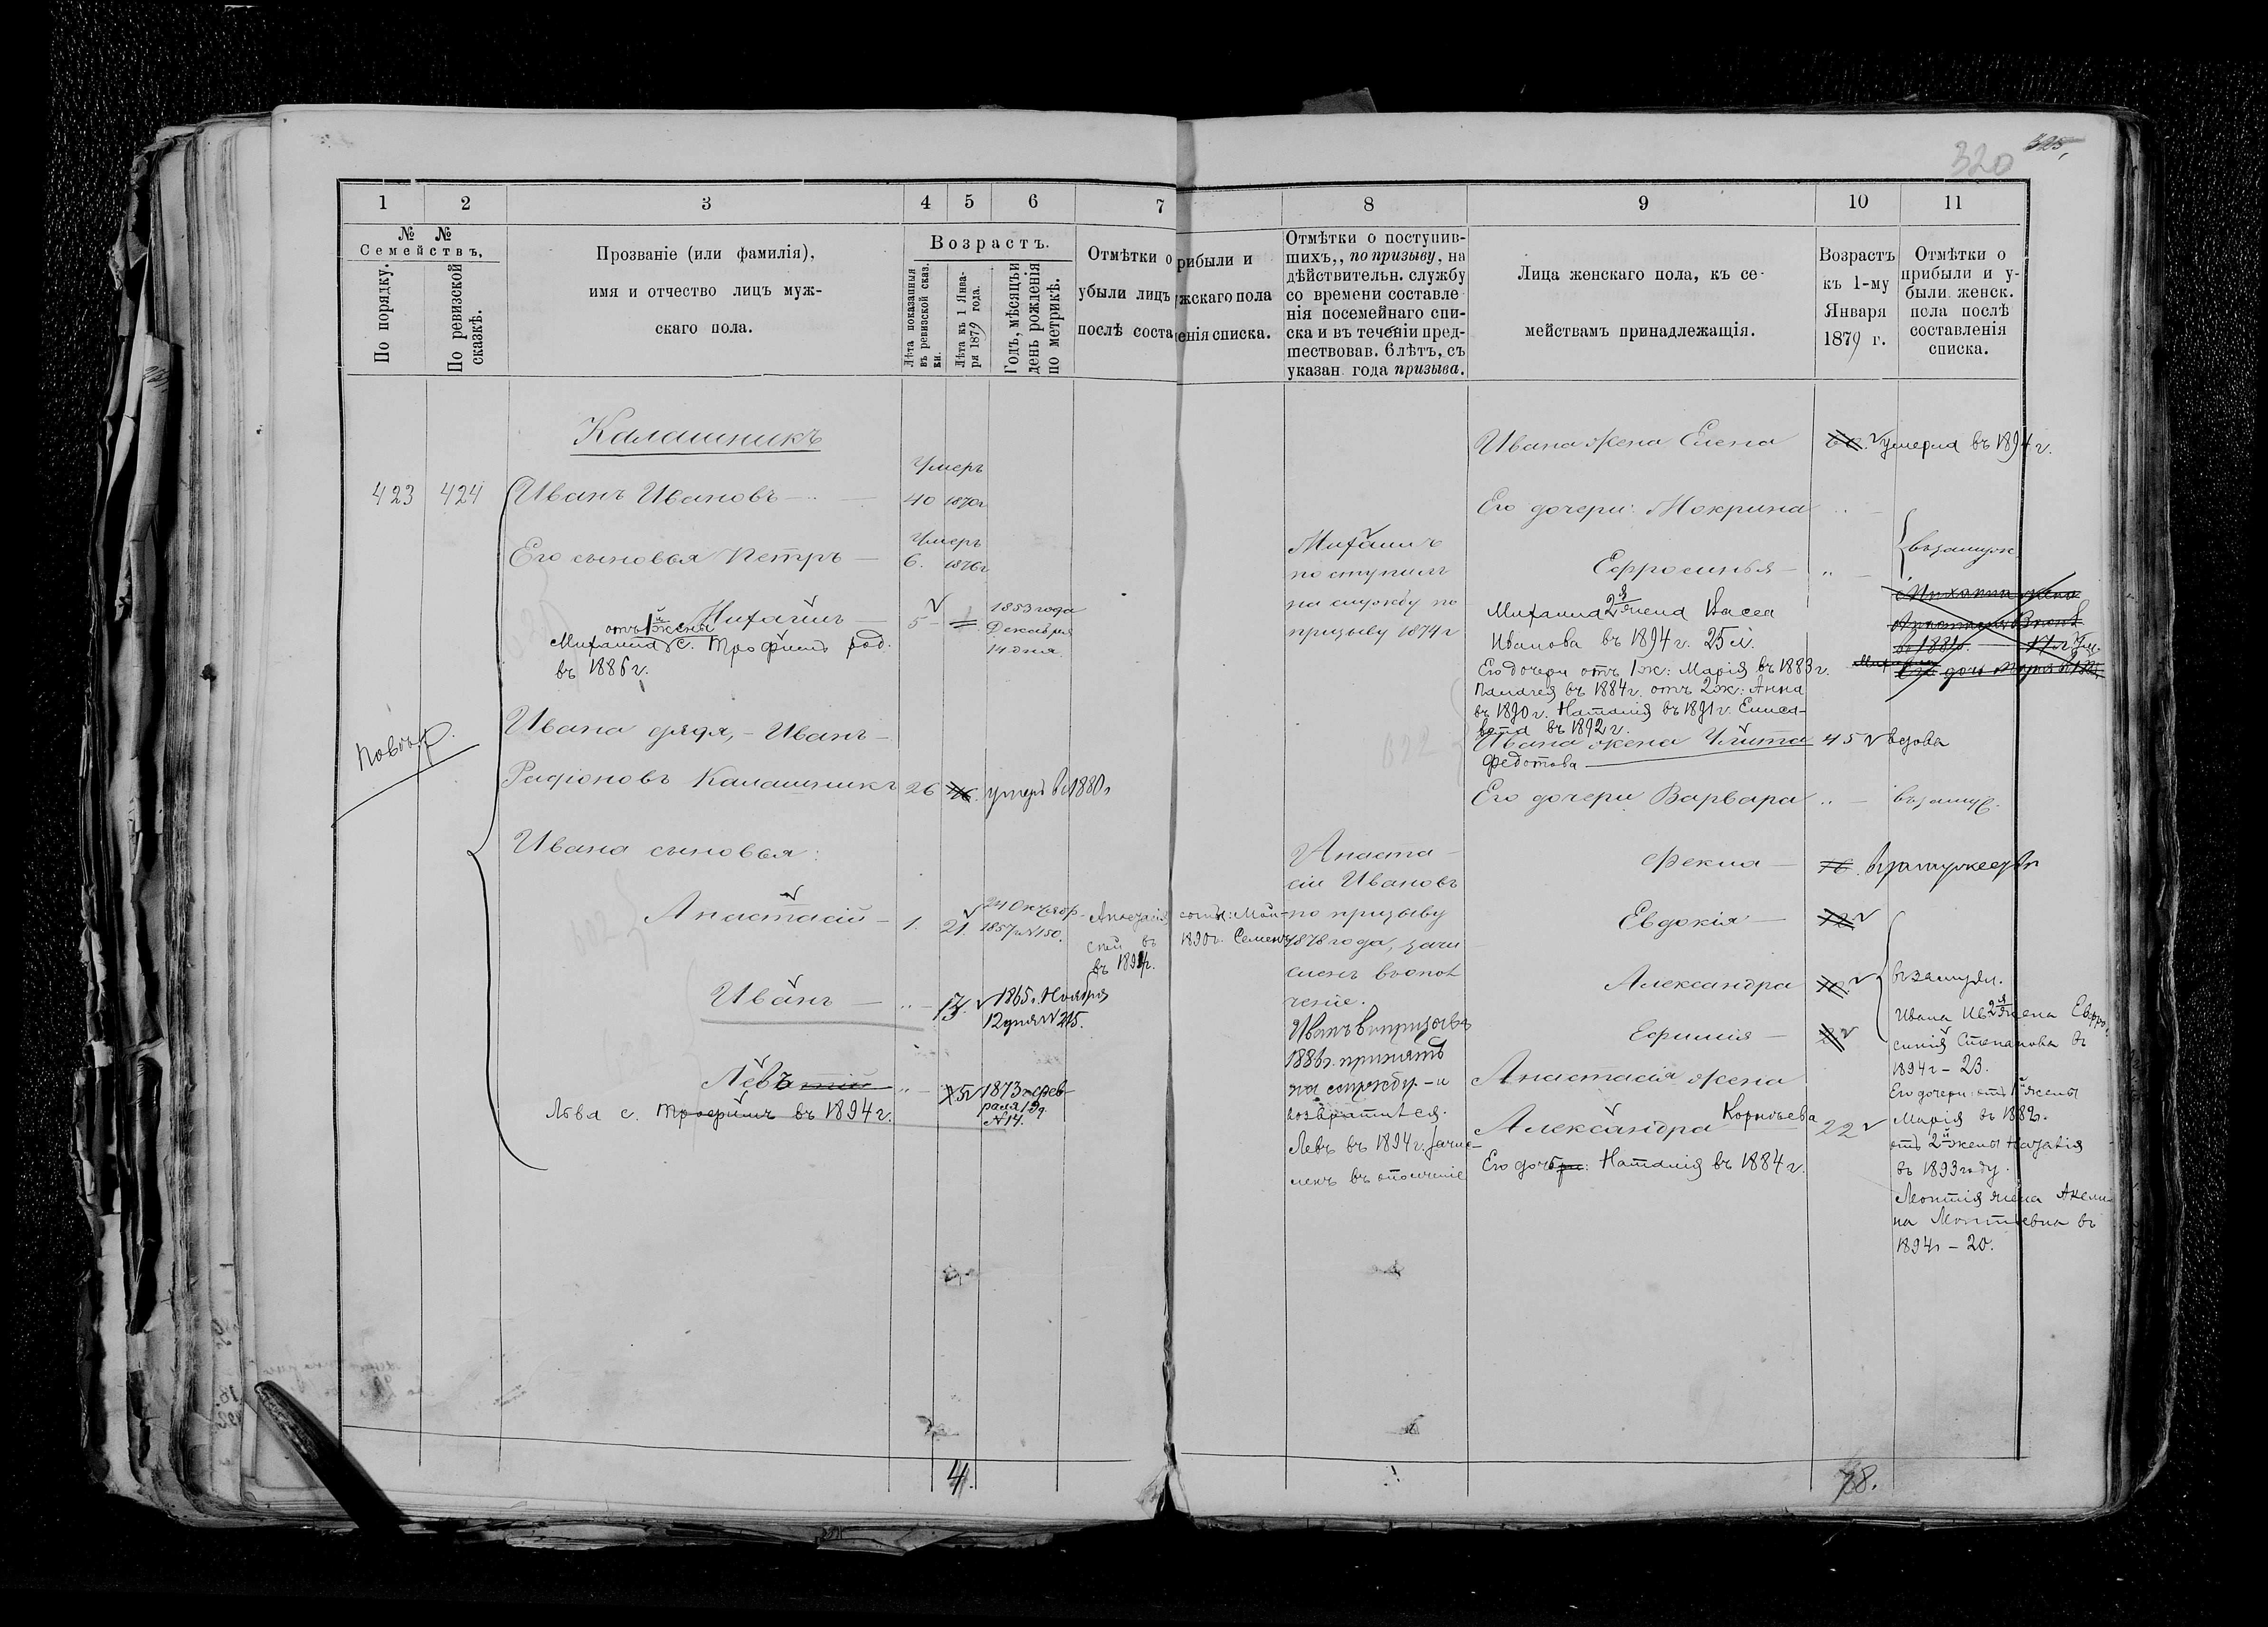 320 325,
1 2 3 4 5 6 7 8 9 10 11
№ №
Семействъ,
По порядку.
По ревизской сказкѣ.
Прозваніе (или фамилія),
имя и отчество лицъ муж-
скаго пола.
Возрастъ.
Лѣта показанныя въ ревизской сказ. ки.
Лѣта къ 1 Янва- ря 1879 года.
Годъ, мѣсяцъ и день рожденія по метрикѣ.
Отмѣтки о прибыли и
убыли лицъ мужскаго пола
послѣ составленія списка.
Отмѣтки о поступив-
шихъ,, по призыву, на
дѣйствительн. службу
со времени составле
нія посемейнаго спи-
ска и въ теченіи пред-
шествовав. 6 лѣтъ, съ
указан. года призыва.
Лица женскаго пола, къ се-
мействамъ принадлежащія.
Возрастъ
къ 1-му
Января
1879 г.
Отмѣтки о
прибыли и у-
были женск.
пола послѣ
составленія
списка.
Калашникъ
423 424 Иванъ Ивановъ
Умеръ
40 1870г
Его сыновья Петръ
Умеръ
6. 1876г
Михаилъ 5
1853 года
Декабря
14 дня.
отъ 1й жены
Михаила с. Трофимъ род.
въ 1886 г.
Ивана дядя, - Иванъ
Радіоновъ Калашникъ 26 46. умеръ въ 1880г
Ивана сыновья:
Анастасій 1. 21.
24 Октябр.
1857г №150.
Иванъ 13.
1865г. Ноября
12 дня № 215.
Левъ 5
1873 г. фев-
раля 19 д.
№14.
Льва с. Трофимъ въ 1894 г.
въ 1890г. Семенъ
Михаилъ
поступилъ
на службу по
призыву 1874 г
Анаста-
сій Ивановъ
по призыву
1878 года, зачи
сленъ въ опол
ченіе.
Иванъ въ призывъ
1886г. принятъ
на службу - и
возвратился.
Левъ въ 1894 г. зачис-
ленъ въ ополченіе
Ивана жена Елена 60. умерла въ 1894 г.
Его дочери: Мокрина
Ефросинья
въ замуж.
Михаила 2я жена Васса
Иванова въ 1894 г. 25 л.
Его дочери отъ 1 ж: Марія въ 1883 г.
Палагея въ 1884 г. отъ 2 ж: Анна
въ 1890 г. Наталія въ 1891 г. Елиса-
вета въ 1892 г.
Ивана жена Улита 45 вдова
Федотова
Его дочери Варвара въ замуж.
Фекла 16. въ замужествѣ
Евдокія 12
Александра 10.
Ефимія 2
въ замуж.
Анастасія жена
Александра Корнѣева 22
Его дочери: Наталія въ 1884 г.
Ивана Ив 2я жена Ефро-
синія Степанова въ
1894 г - 23.
Его дочери: отъ 1й жены
Марія въ 1882.
отъ 2й жены
въ 1893 году.
Леонтія жена Акели-
на Леонтьевна въ
1894г - 20.
4. 78.